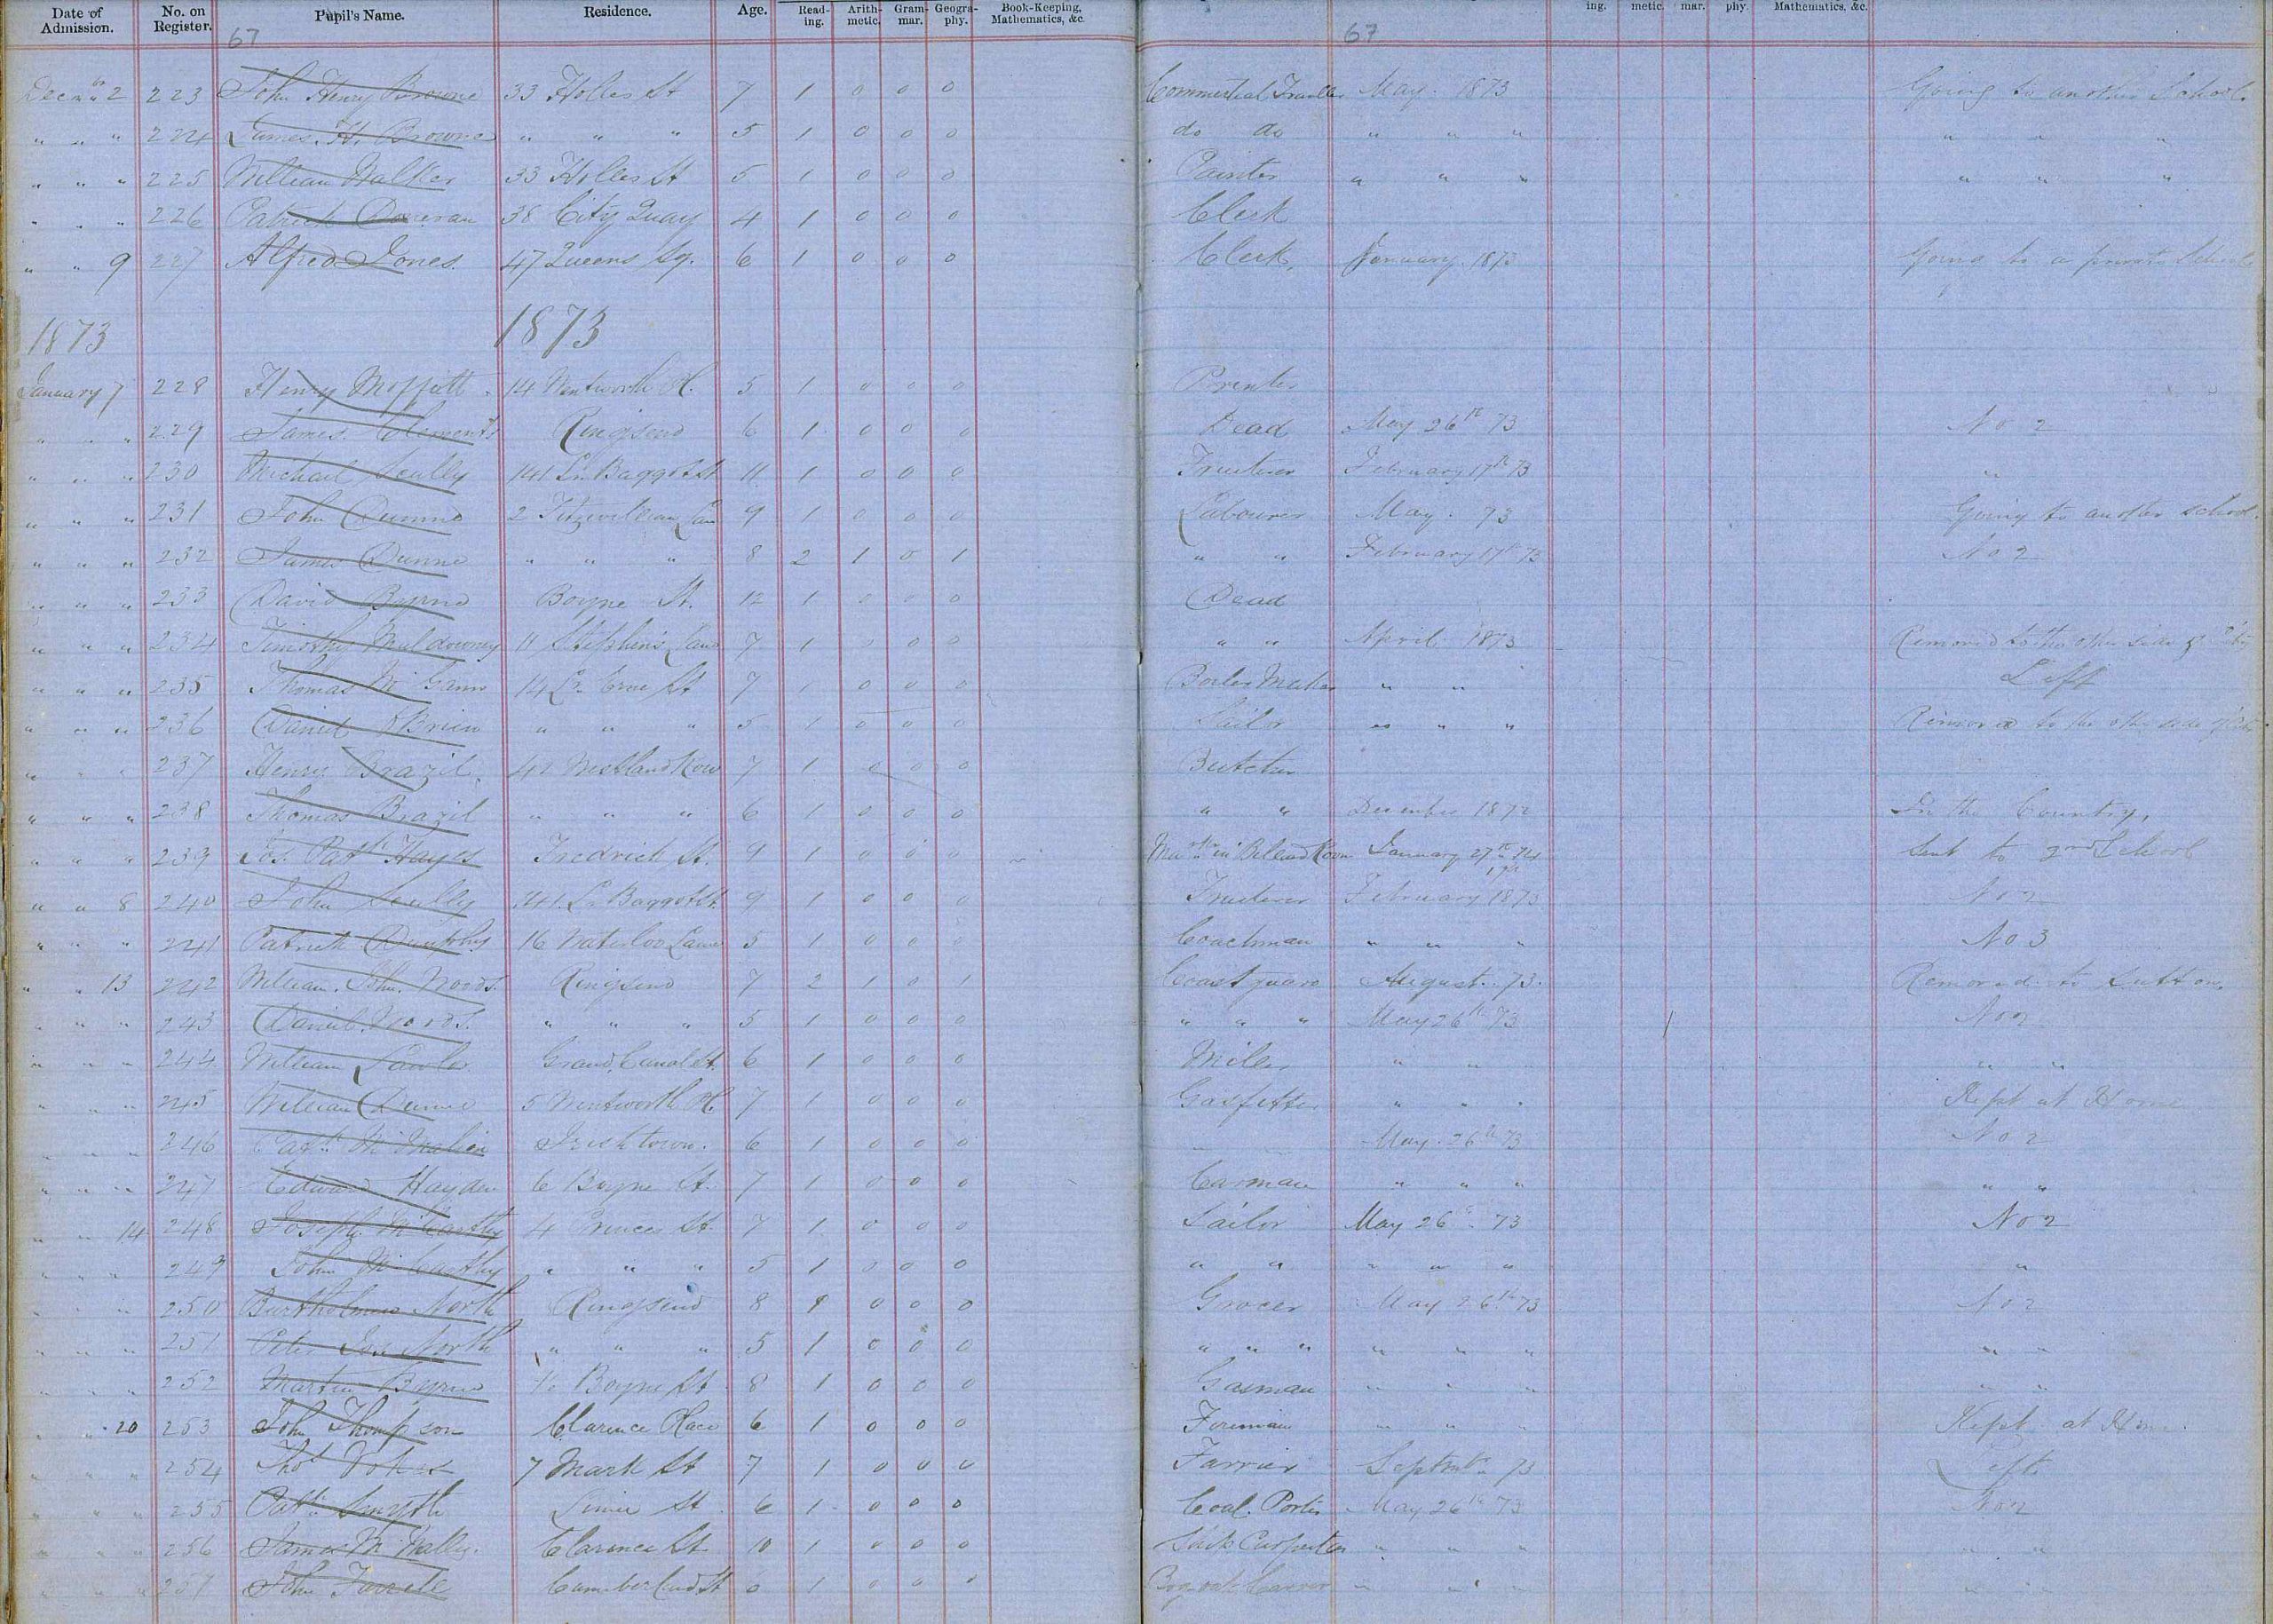 Date of Admission. No. on Register. Pupil's Name. Residence. Age. Read-ing. Arith-metic. Gram-mar. Geogra-phy. Book-Keeping, Mathematics, &c. ing. metic. mar. phy. Mathematics, &c.
67 67
Decm 2 223 John Henry Browne 33 Holles St 7 1 0 0 0 Commertial Traveller May. 1873 Going to another School.
" " " 224 James H. Browne " " " 5 1 0 0 0 do do " " " " " "
" " " 225 William Walker 33 Holles St 5 1 0 0 0 Painter " " " " " "
" " " 226 Patrick Donovan 38 City Quay 4 1 0 0 0 Clerk
" " 9 227 Alfred Jones. 47 Queens Sq. 6 1 0 0 0 Clerk, January 1873 Going to a private School
1873 1873
January 7 228 Henry Moffitt 14 Wentworth Pl. 5 1 0 0 0 Printer
" " " 229 James Clements Ringsend 6 1 0 0 0 Dead May 26th 73 No 2
" " " 230 Michael Scully 141 Lr. Baggot St 11 1 0 0 0 Fruiterer February 17th 73 "
" " " 231 John Dunne 2 Fitzwilliam Lane 9 1 0 0 0 Labourer May. 73 Going to another school.
" " " 232 James Dunne " " " 8 2 1 0 1 " " February 17th 73 No 2
" " " 233 David Byrne Boyne St. 12 1 0 0 0 Dead
" " " 234 Timothy Muldowney 11 Stephen's Lane 7 1 0 0 0 " " April. 1873 Removed to the other side of City
" " " 235 Thomas McGann 14 Lr. Erne St 7 1 0 0 0 Boiler Maker " " Left
" " " 236 Daniel O'Brien " " " 5 1 0 0 0 Sailor " " " Removed to the other side of City
" " " 237 Henry Brazil. 42 Westland Row 7 1 0 0 0 Butcher
" " " 238 Thomas Brazil " " " 6 1 0 0 0 " " December 1872 In the Country,
" " " 239 Jos. Patk Hayes Fredrick St. 9 1 0 0 0 January 27th 74 Sent to 2nd School
" " 8 240 John Scully 141 Lr Baggot St. 9 1 0 0 0 Fruiterer February 17th 1873 No 2
" " " 241 Patrick Dunphy 16 Waterloo Lane 5 1 0 0 0 Coachman " " " No 3
" " 13 242 William. John. Woods. Ringsend 7 2 1 0 1 Coastguard August. 73. Removed to Sutton.
" " " 243 Daniel Woods. " " " 5 1 0 0 0 " " " May 26th 73 No 2
" " " 244 William Lawler Grand Canal St. 6 1 0 0 0 Miller " " " "
" " " 245 William Dunne 5 Wentworth Pl. 7 1 0 0 0 Gasfitter " " " Kept at Home
" " " 246 Patk Irishtown. 6 1 0 0 0 May. 26th 73 No 2
" " " 247 Edward Hayden 6 Boyne St. 7 1 0 0 0 Carman " " " " "
" " 14 248 Joseph McCarthy 4 Princes St. 7 1 0 0 0 Sailor May 26th 73 No 2
" " " 249 John McCarthy " " " 5 1 0 0 0 " " " " " "
" " " 250 Bartholmew North Ringsend 8 1 0 0 0 Grocer May 26th 73 No 2
" " " 251 Peter North " " " 5 1 0 0 0 " " " " " " " "
" " " 252 Martin Byrne Boyne St 8 1 0 0 0 Gasman " " " " "
" " 20 253 John Thompson Clarence Place 6 1 0 0 0 " " " Kept at Home.
" " " 254 Thos Vokes 7 Mark St 7 1 0 0 0 Farrier Septmbr 73 Left
" " " 255 Patk Smyth St 6 1 0 0 0 Coal. Porter May 26th 73 No 2
" " " 256 James McNally. Clarence St. 10 1 0 0 0 Ship Carpenter " " " " "
" " " 257 John Farrell Cumberland St 6 1 0 0 0 Bog-oak Carver " " " " "